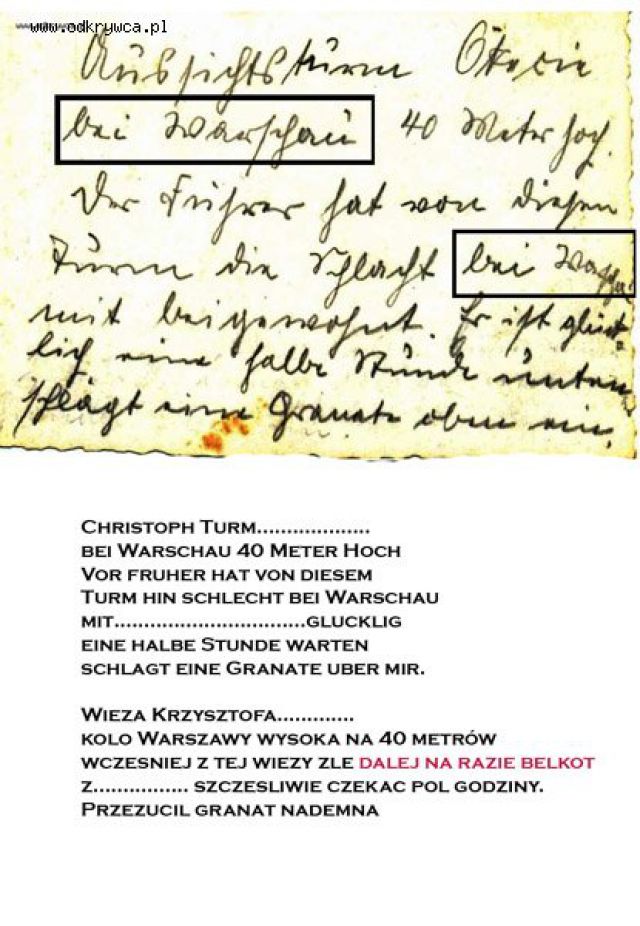 www.odkrywca.pl
Aussichtsturm Okecie
bei Warschau 40 Meter hoch.
Der Führer hat von diesen
Turm die Schlacht bei Warschau
mit beigewohnt. Er ist glück-
lich eine halbe Stunde unten
schlägt eine Granate oben ein.
Christoph Turm...................
bei Warschau 40 Meter Hoch
Vor fruher hat von diesem
Turm hin schlecht bei Warschau
mit................................glucklig
eine halbe Stunde warten
schlagt eine Granate uber mir.
Wieza Krzysztofa.............
kolo Warszawy wysoka na 40 metrów
wczesniej z tej wiezy zle dalej na razie belkot
z................ szczesliwie czekac pol godziny.
Przezucil granat nademna